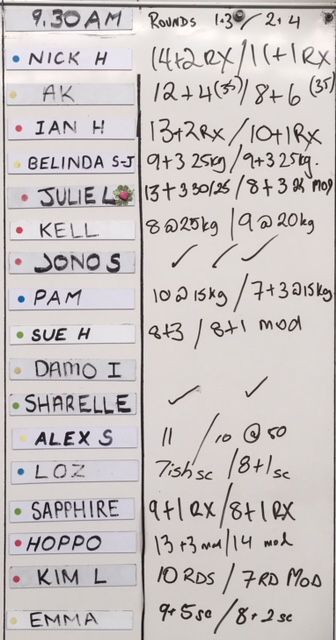 9.30 AM ROUNDS 1+3 / 2+4
NICK H 14+2 RX / 11+1 RX
AK 12+4 (35) / 8+6 (35)
IAN H 13+2 RX / 10+1 RX
BELINDA S-J 9+3 25kg / 9+3 25kg.
JULIE L 13+3 30/25 / 8+3 25 mod
KELL 8@25kg / 9@20kg
JONO S ✓ ✓ ✓
PAM 10@15kg / 7+3@15kg
SUE H 8+3 / 8+1 mod
DAMO I
SHARELLE ✓ ✓
ALEX S 11 / 10 @ 50
LOZ 7ish sc / 8+1 sc
SAPPHIRE 9+1 RX / 8+1 RX
HOPPO 13+3 mod / 14 mod
KIM L 10 RDS / 7 RD MOD
EMMA 9+5 sc / 8+2 sc